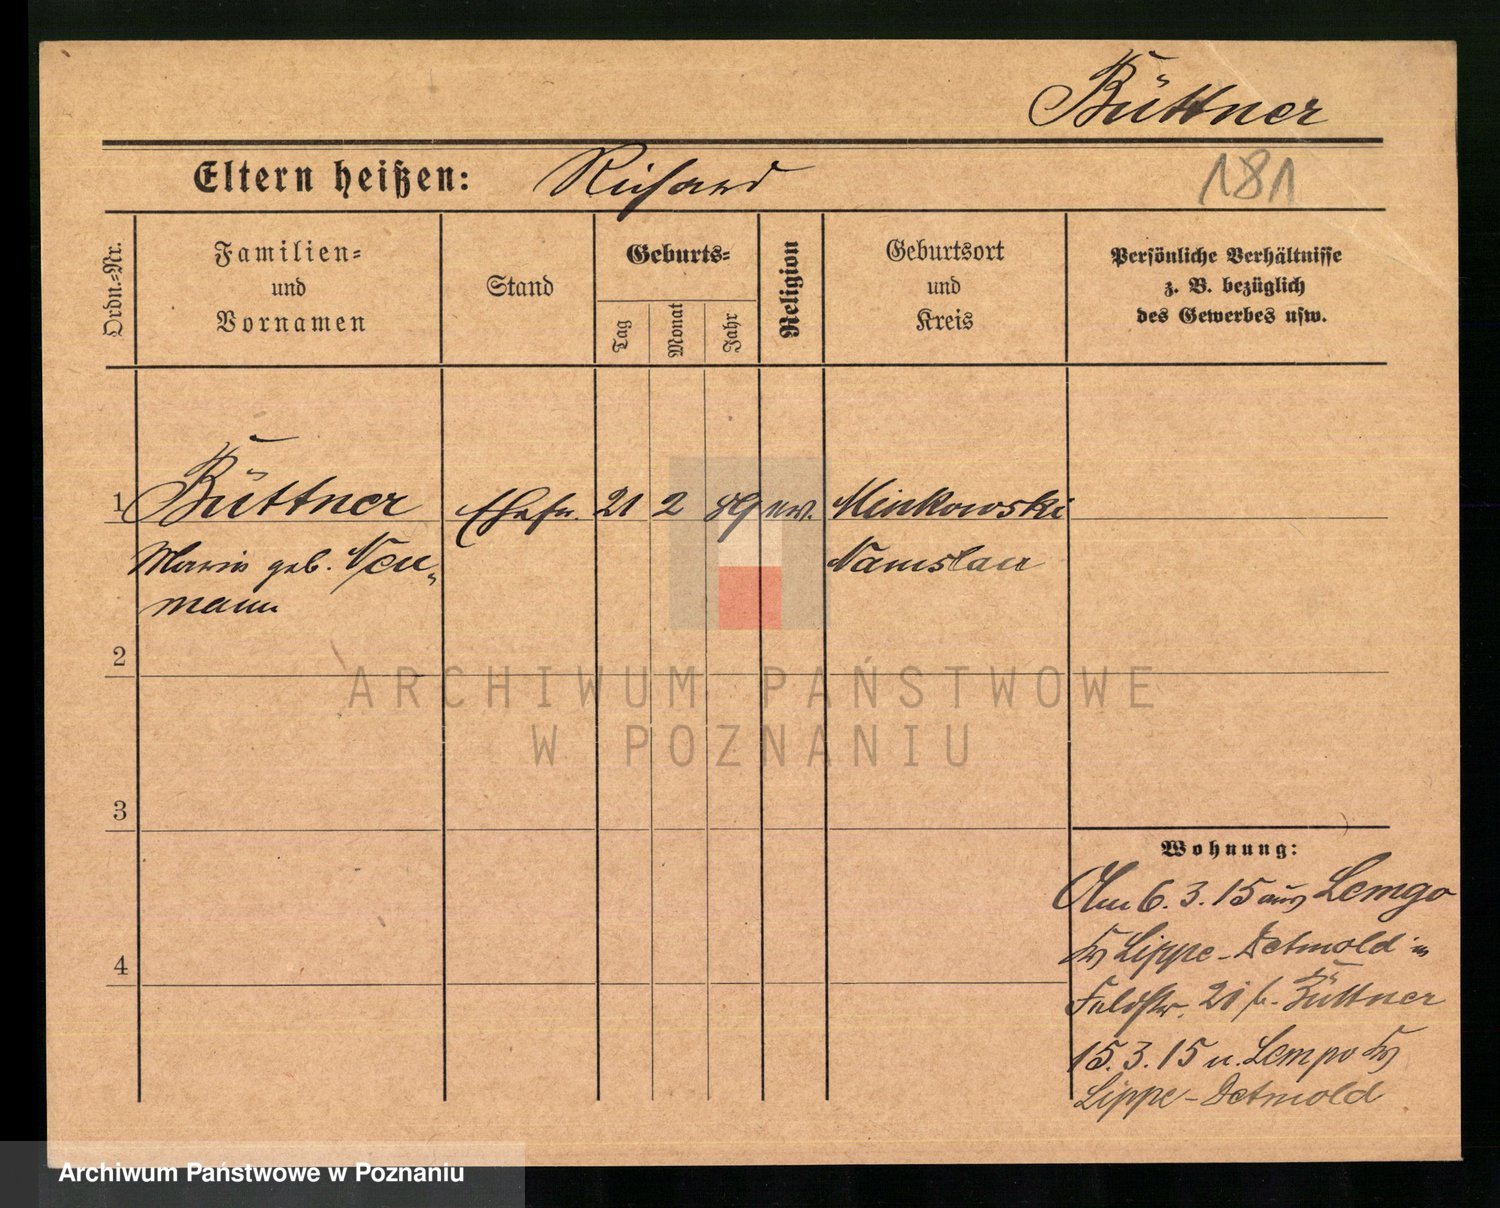 Büttner
Eltern heißen: Richard
181
Ordn.-Nr.
Familien-
und
Vornamen
Stand
Geburts-
Tag
Monat
Jahr
Religion
Geburtsort
und
Kreis
Persönliche Verhältnisse
z. B. bezüglich
des Gewerbes usw.
1 Büttner Ehefr. 21 2 89 ev. Minkowski
Marie geb. Neu-
mann
Namslau
2
3
4
Wohnung:
Am 6.3.15 aus Lemgo
Kr Lippe-Detmold in
Feldstr. 21 b. Büttner
15.3.15 n. Lempo Kr
Lippe-Detmold
ARCHIWUM PAŃSTWOWE
W POZNANIU
Archiwum Państwowe w Poznaniu